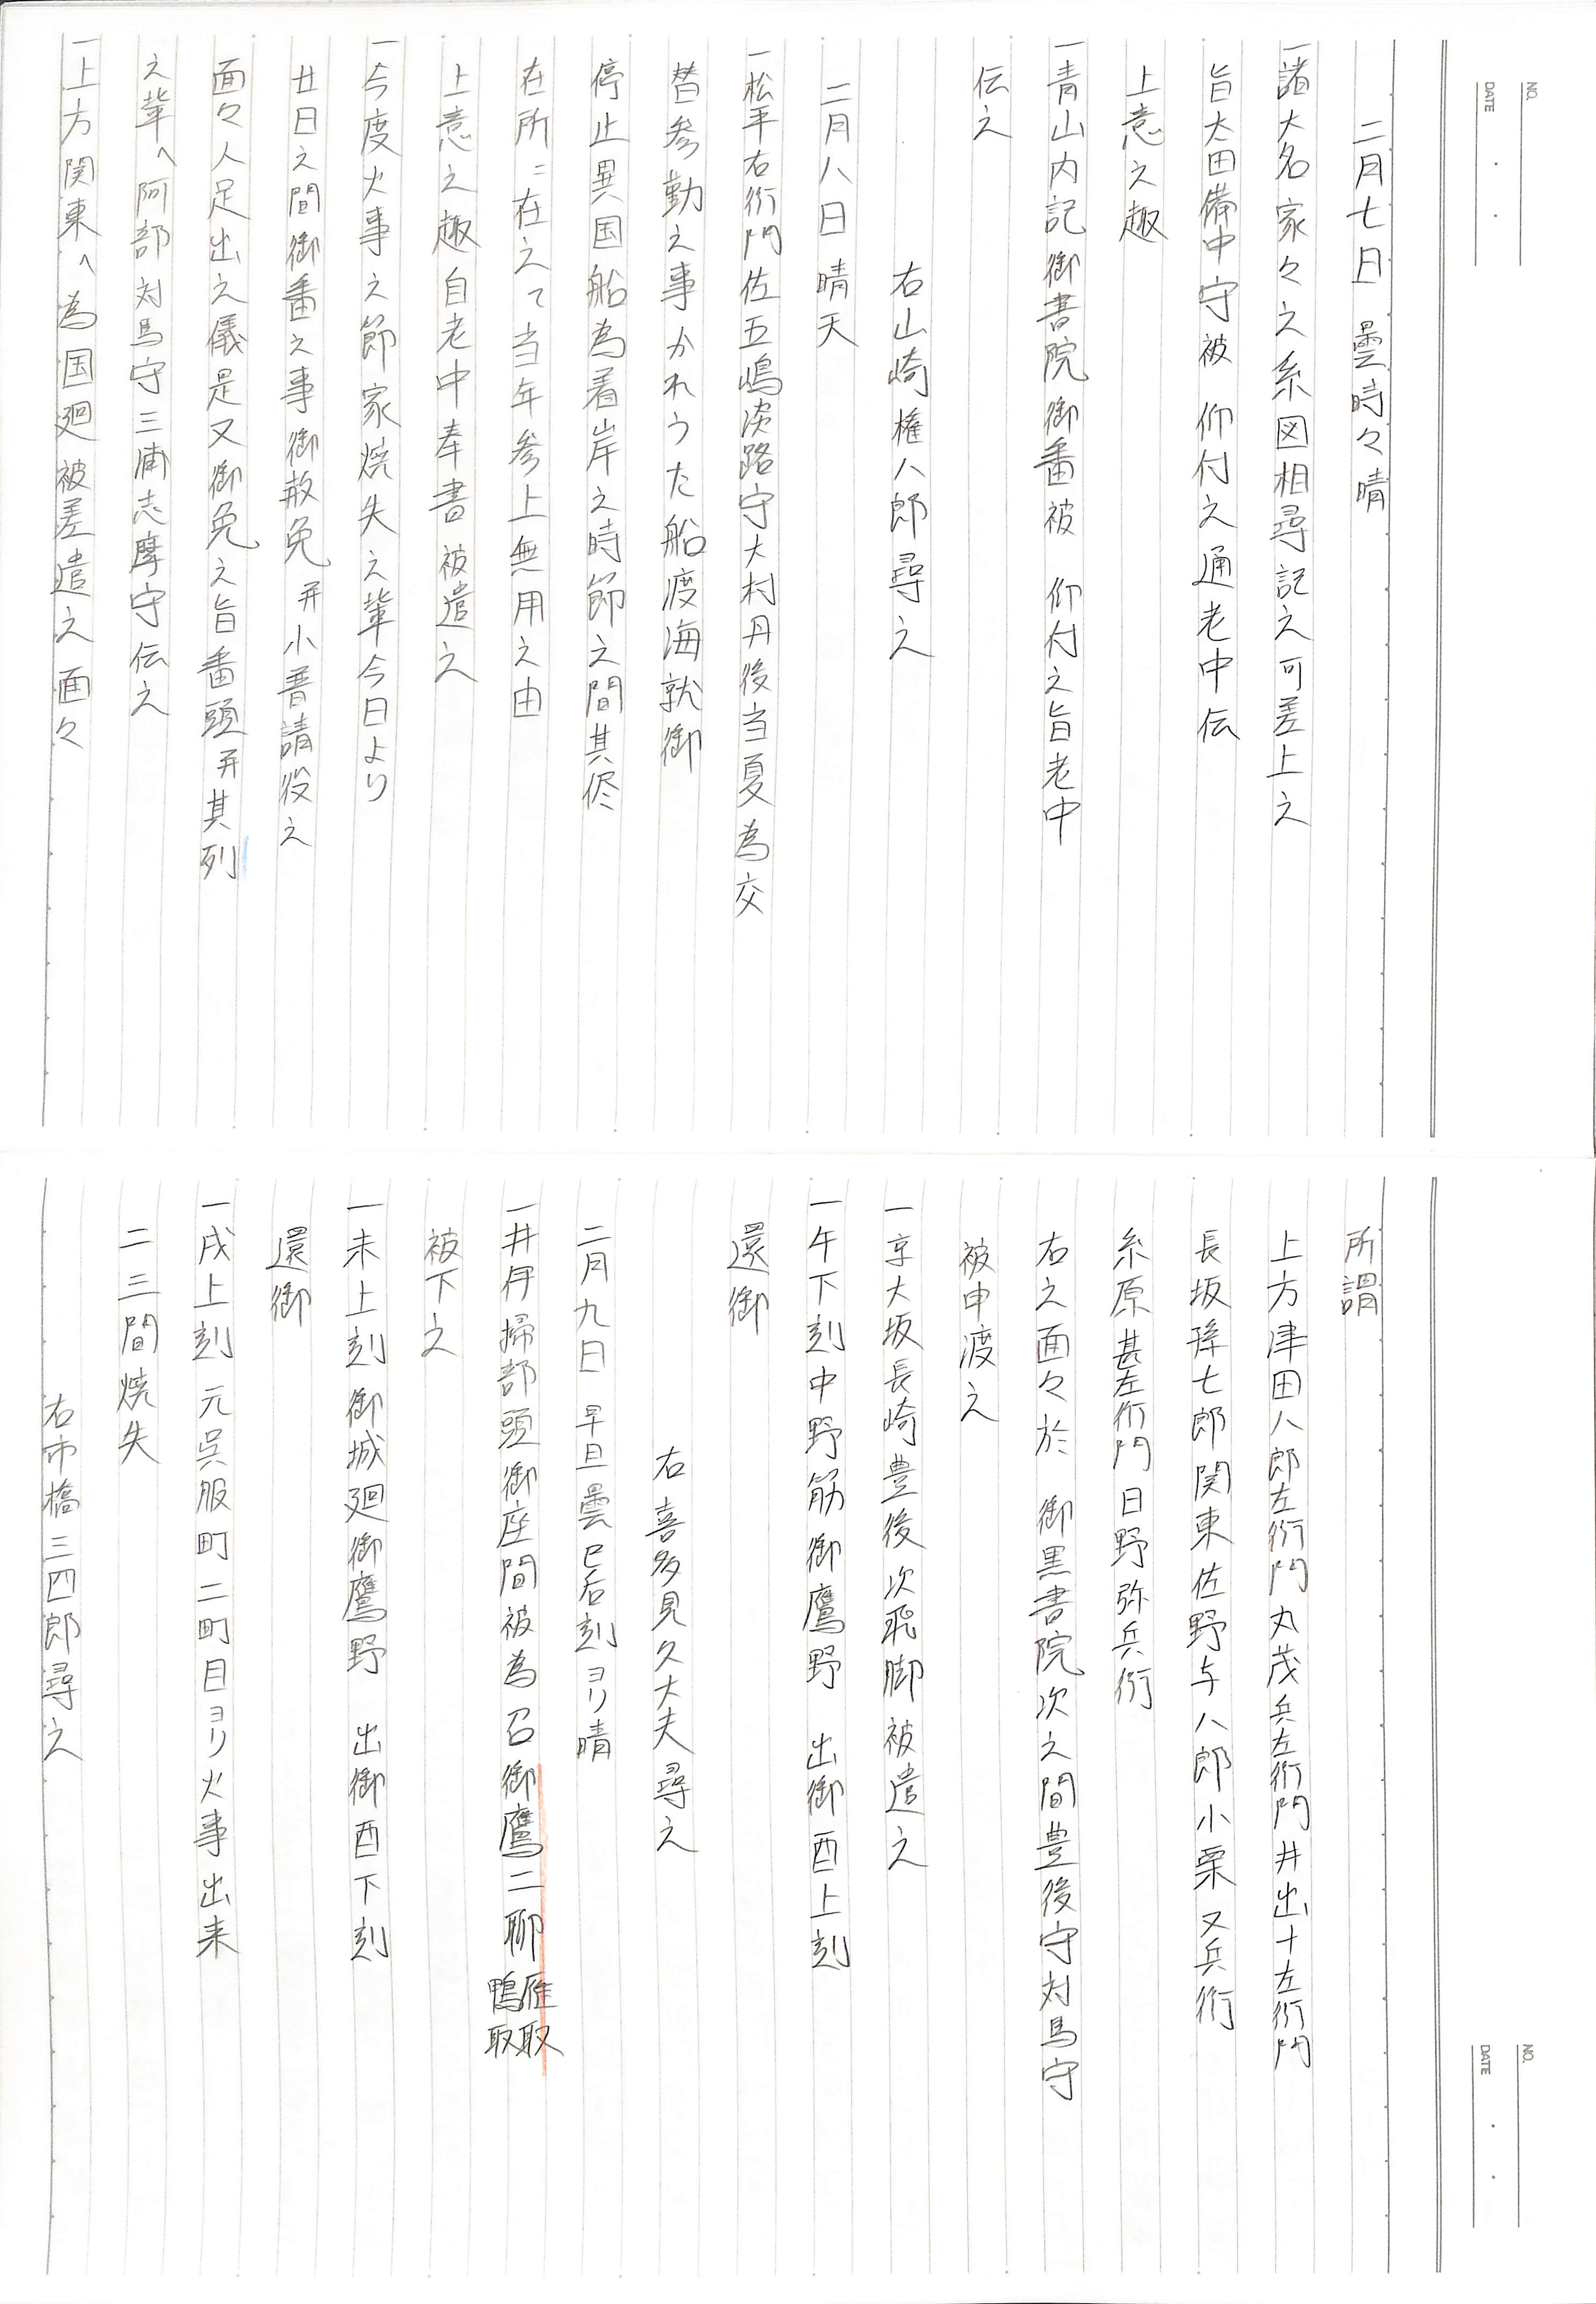 NO.
DATE
二月七日 曇時々晴
一諸大名家々之系図相尋記之可差上之
旨太田備中守被 仰付之通老中伝
上意之趣
一青山内記御書院御番被 仰付之旨老中
伝之
右山崎権八郎尋之
二月八日晴天
一松平右衛門佐五嶋淡路守大村丹後当夏為交
替参勤之事かれうた船渡海就御
停止異国船為着岸之時節之間其侭
在所ニ在之て当年参上無用之由
上意之趣自老中奉書被遣之
一今度火事之節家焼失之輩今日より
廿日之間御番之事御赦免并小普請役之
面々人足出之儀是又御免之旨番頭并其列
之輩へ阿部対馬守三浦志摩守伝之
一上方関東へ為国廻被差遣之面々
NO.
DATE
所謂
上方津田八郎左衛門丸茂兵左衛門井出十左衛門
長坂孫七郎関東佐野与八郎小栗又兵衛
糸原甚左衛門日野弥兵衛
右之面々於 御黒書院次之間豊後守対馬守
被申渡之
一京大坂長崎豊後次飛脚被遣之
一午下刻中野筋御鷹野 出御酉上刻
還御
右喜多見久大夫尋之
二月九日 早旦曇巳后刻ヨリ晴
一井伊掃部頭御座間被為召御鷹二聯雁取鴨取
被下之
一未上刻御城廻御鷹野 出御酉下刻
還御
一戌上刻元呉服町二町目ヨリ火事出来
二三間焼失
右市橋三四郎尋之